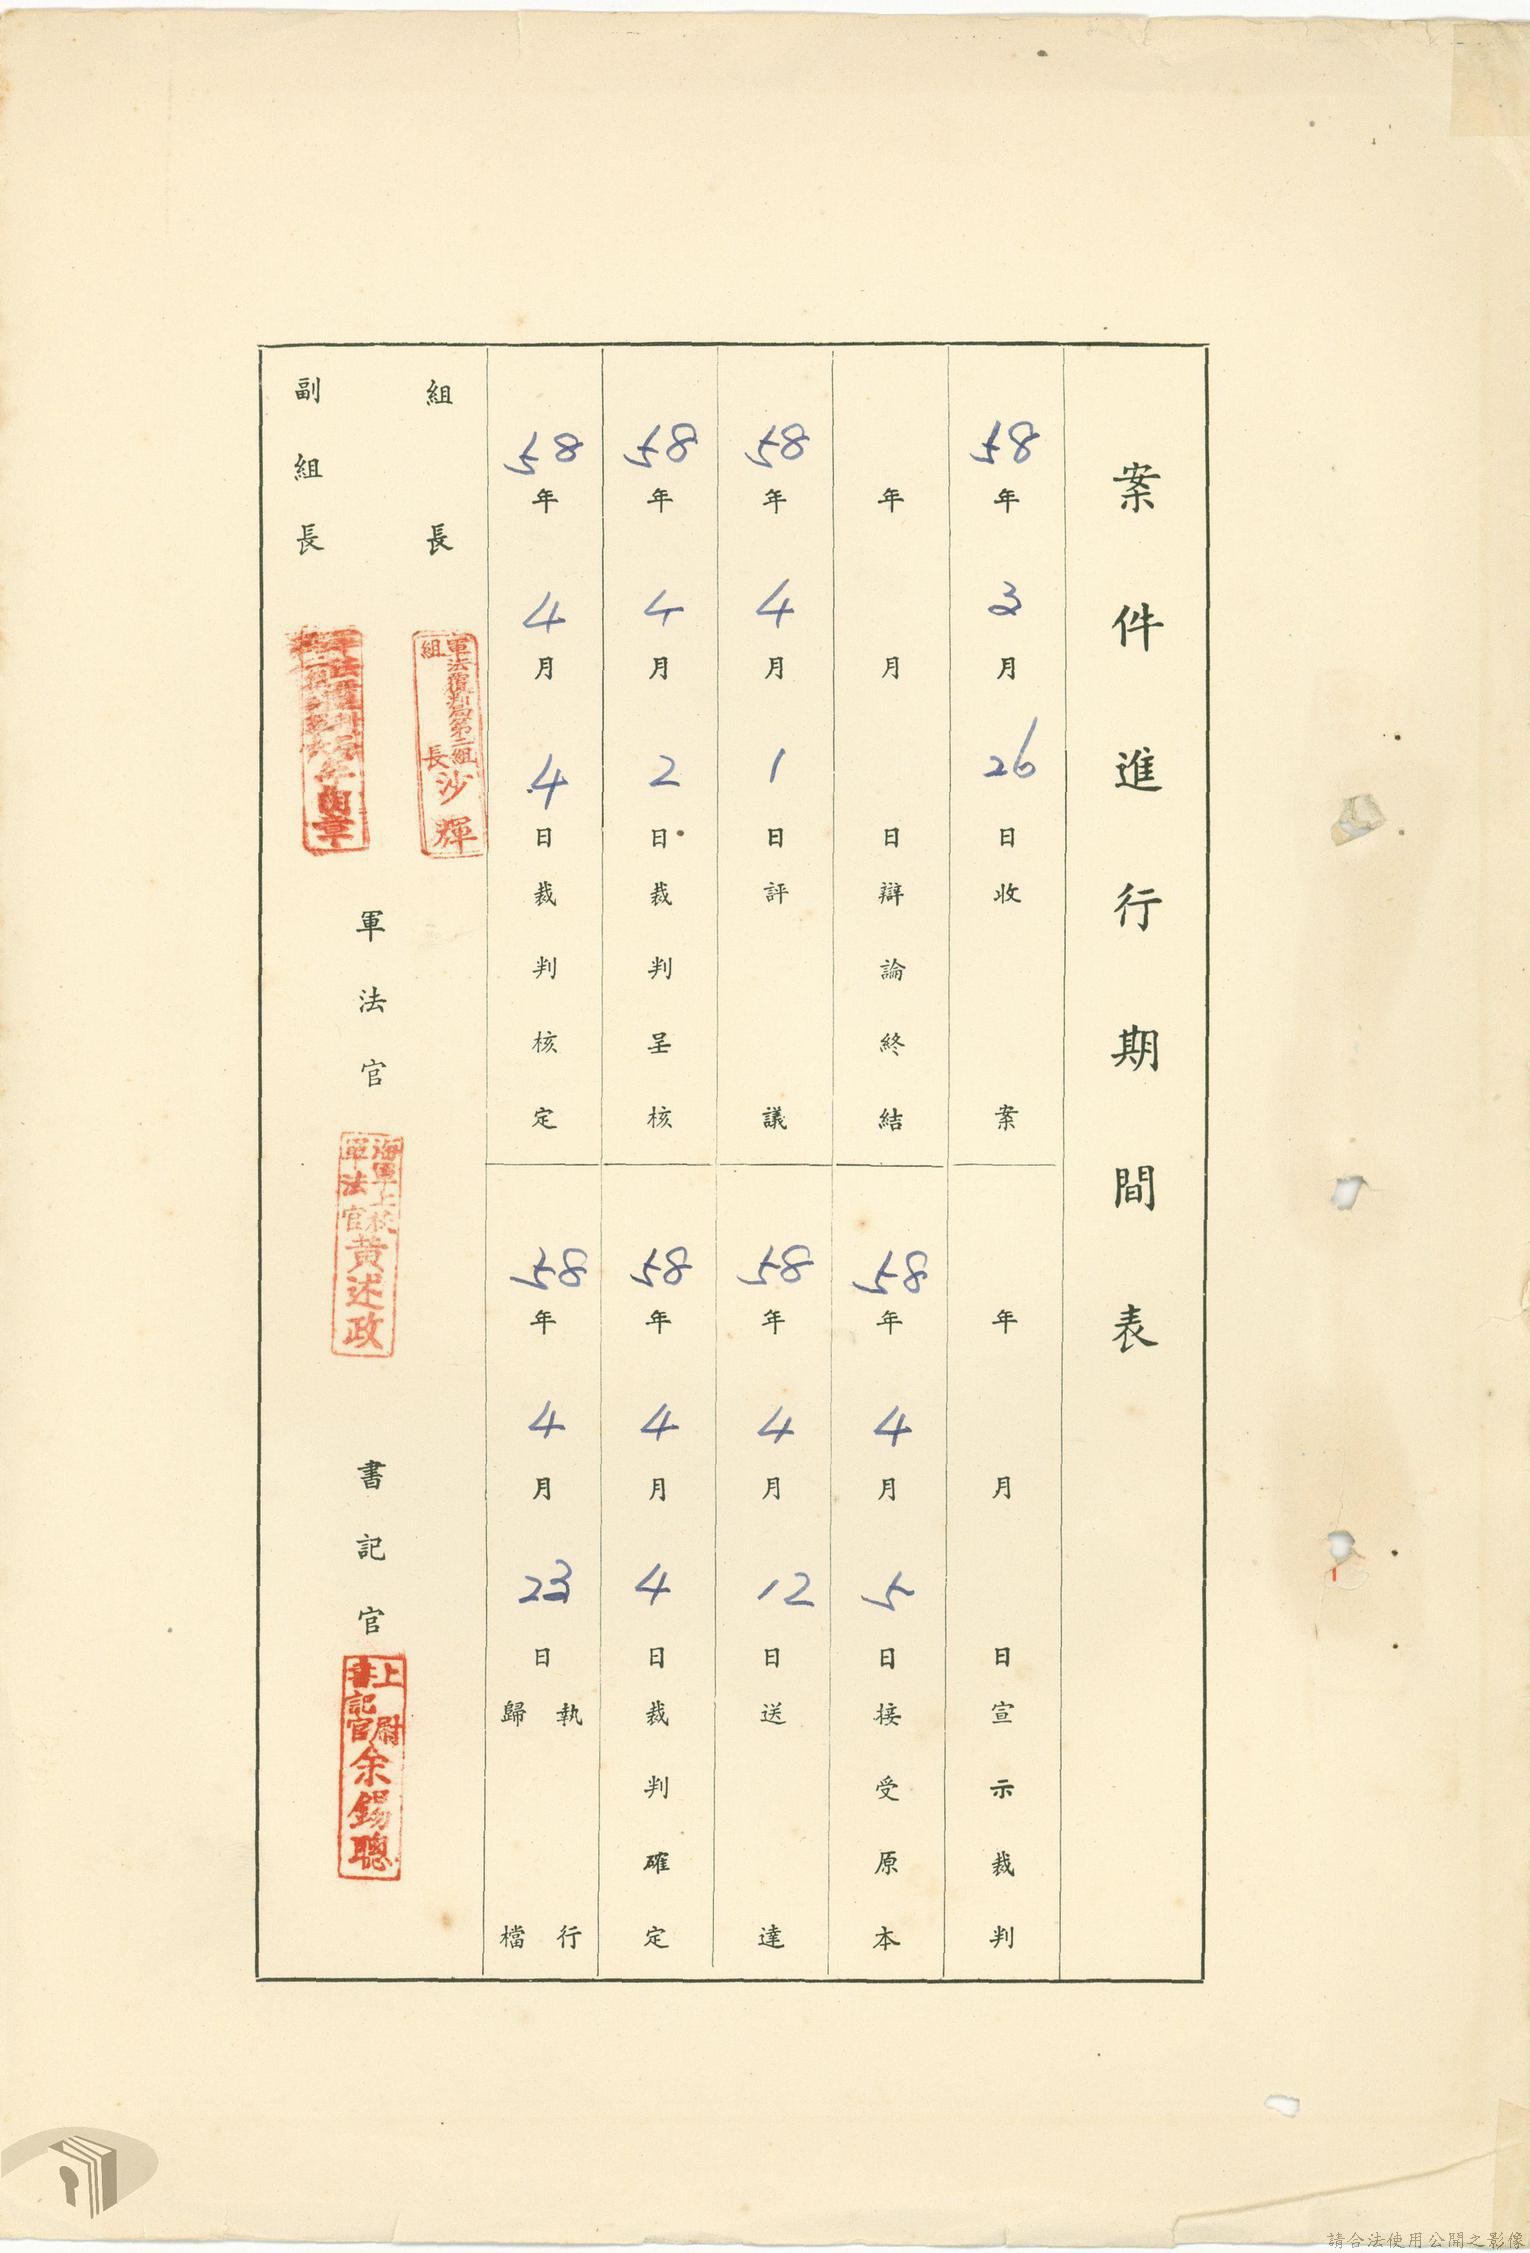 案件進行期間表
58年3月26日收案
年月日宣示裁判
年月日辯論終結
58年4月5日接受原本
58年4月1日評議
58年4月12日送達
58年4月2日裁判呈核
58年4月4日裁判確定
58年4月4日裁判核定
58年4月23日執行歸檔
組長
軍法覆判局第二組組長沙輝
副組長
軍法官
海軍上校軍法官黃述政
書記官
上尉書記官余錫聰
請合法使用公開之影像